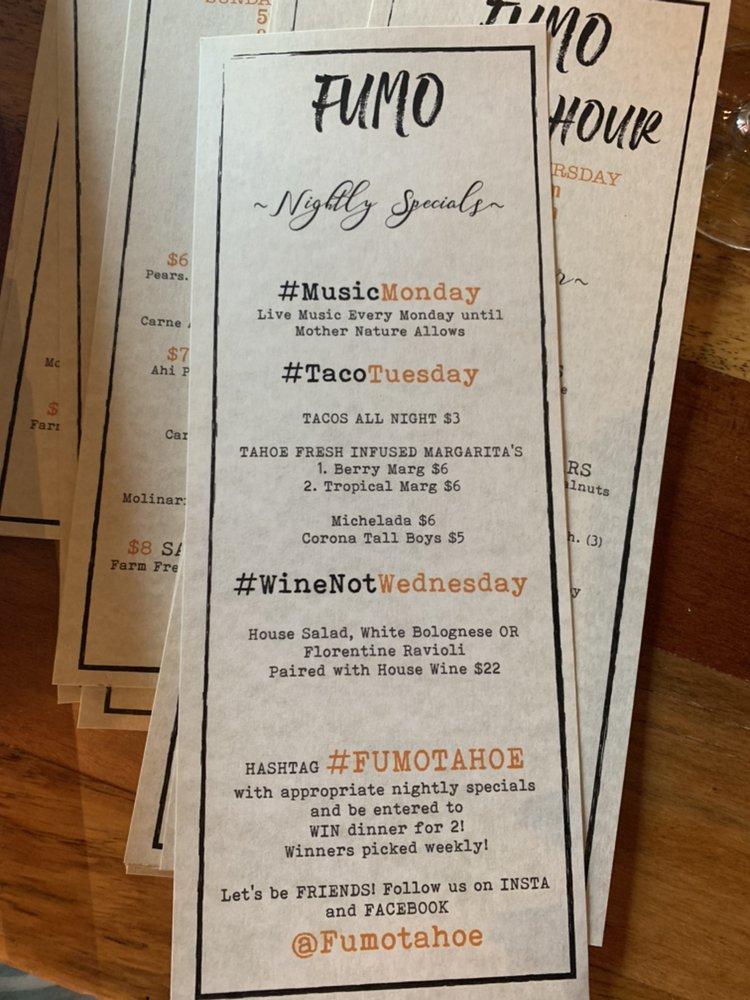 FUMO
~Nightly Specials~
#MusicMonday
Live Music Every Monday until
Mother Nature Allows
#TacoTuesday
TACOS ALL NIGHT $3
TAHOE FRESH INFUSED MARGARITA'S
1. Berry Marg $6
2. Tropical Marg $6
Michelada $6
Corona Tall Boys $5
#WineNotWednesday
House Salad, White Bolognese OR
Florentine Ravioli
Paired with House Wine $22
HASHTAG #FUMOTAHOE
with appropriate nightly specials
and be entered to
WIN dinner for 2!
Winners picked weekly!
Let's be FRIENDS! Follow us on INSTA
and FACEBOOK
@Fumotahoe
5
$6
Pears.
Carne
$7
Ahi
Molinar
$8
Farm Fre
$
Farm
FUMO
HOUR
RSDAY
RS
alnuts
h. (3)